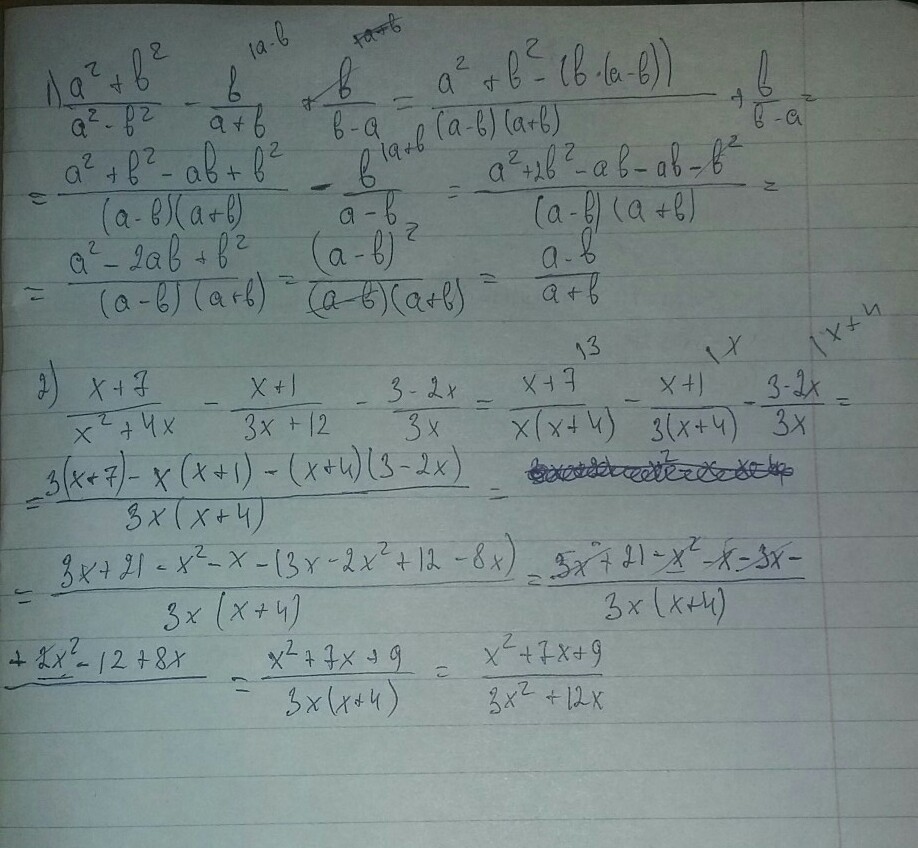 1) (a² + b²)/(a² - b²) - b/(a + b) |a-b + b/(b - a) = (a² + b² - (b·(a-b)))/((a-b)(a+b)) + b/(b - a) =
= (a² + b² - ab + b²)/((a-b)(a+b)) - b/(a - b) |a+b = (a² + 2b² - ab - ab - b²)/((a-b)(a+b)) =
= (a² - 2ab + b²)/((a-b)(a+b)) = (a-b)²/((a-b)(a+b)) = (a-b)/(a+b)
2) (x+7)/(x² + 4x) - (x+1)/(3x+12) - (3-2x)/(3x) = (x+7)/(x(x+4)) |3 - (x+1)/(3(x+4)) |x - (3-2x)/(3x) |x+4 =
= (3(x+7) - x(x+1) - (x+4)(3-2x))/(3x(x+4)) =
= (3x+21 - x² - x - (3x - 2x² + 12 - 8x))/(3x(x+4)) = (3x + 21 - x² - x - 3x -)/(3x(x+4))
+ 2x² - 12 + 8x = (x² + 7x + 9)/(3x(x+4)) = (x² + 7x + 9)/(3x² + 12x)